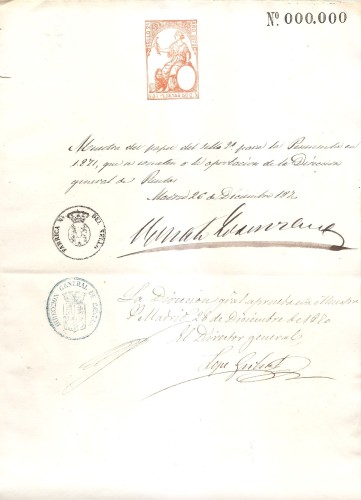 Nº 000.000
Muestra del papel del sello 2º para la Península en
1871, que se somete a la aprobacion de la Direccion
general de Rentas
Madrid 26 de Diciembre 187
FABRICA NAL DEL SELLO
DIRECCION GENERAL DE RENTAS
La Direccion gral aprueba esta Muestra
Madrid 28 de Diciembre de 1870
El Director general
Lope Gisbert